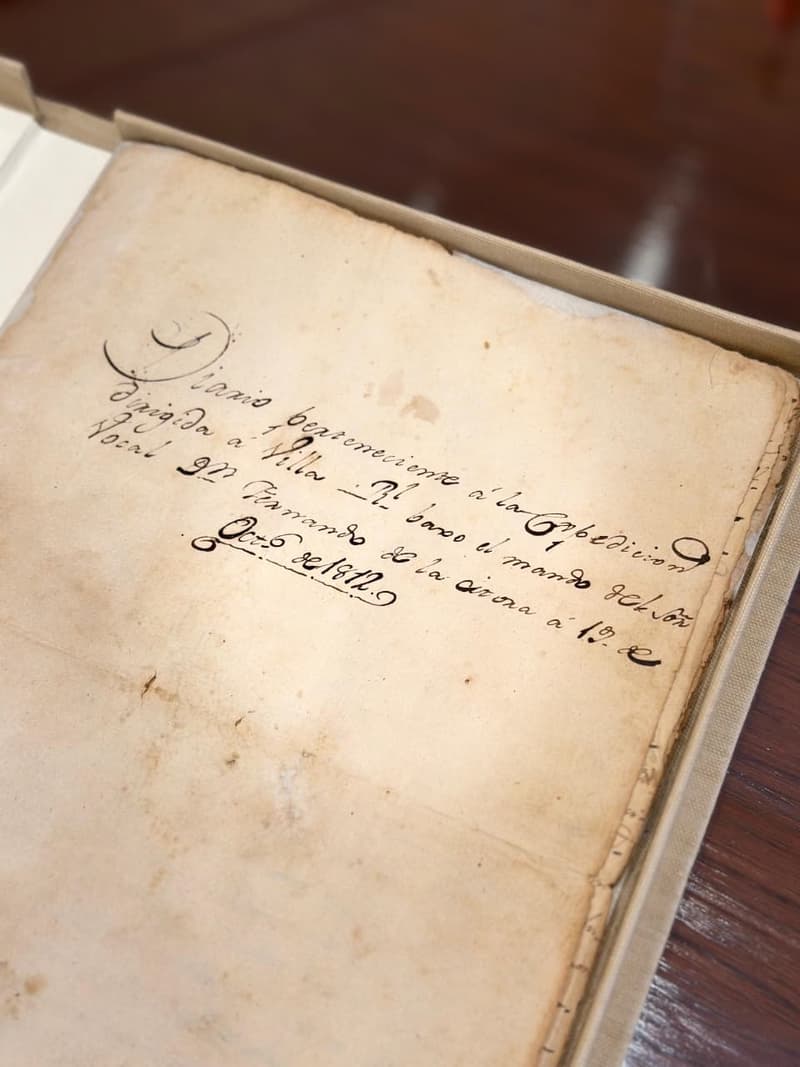 Diario perteneciente á la Expedicion
dirigida á Villa Rl. baxo el mando del Sor.
Vocal Dn. Fernando de la
á 19. de
Octe. de 1812.